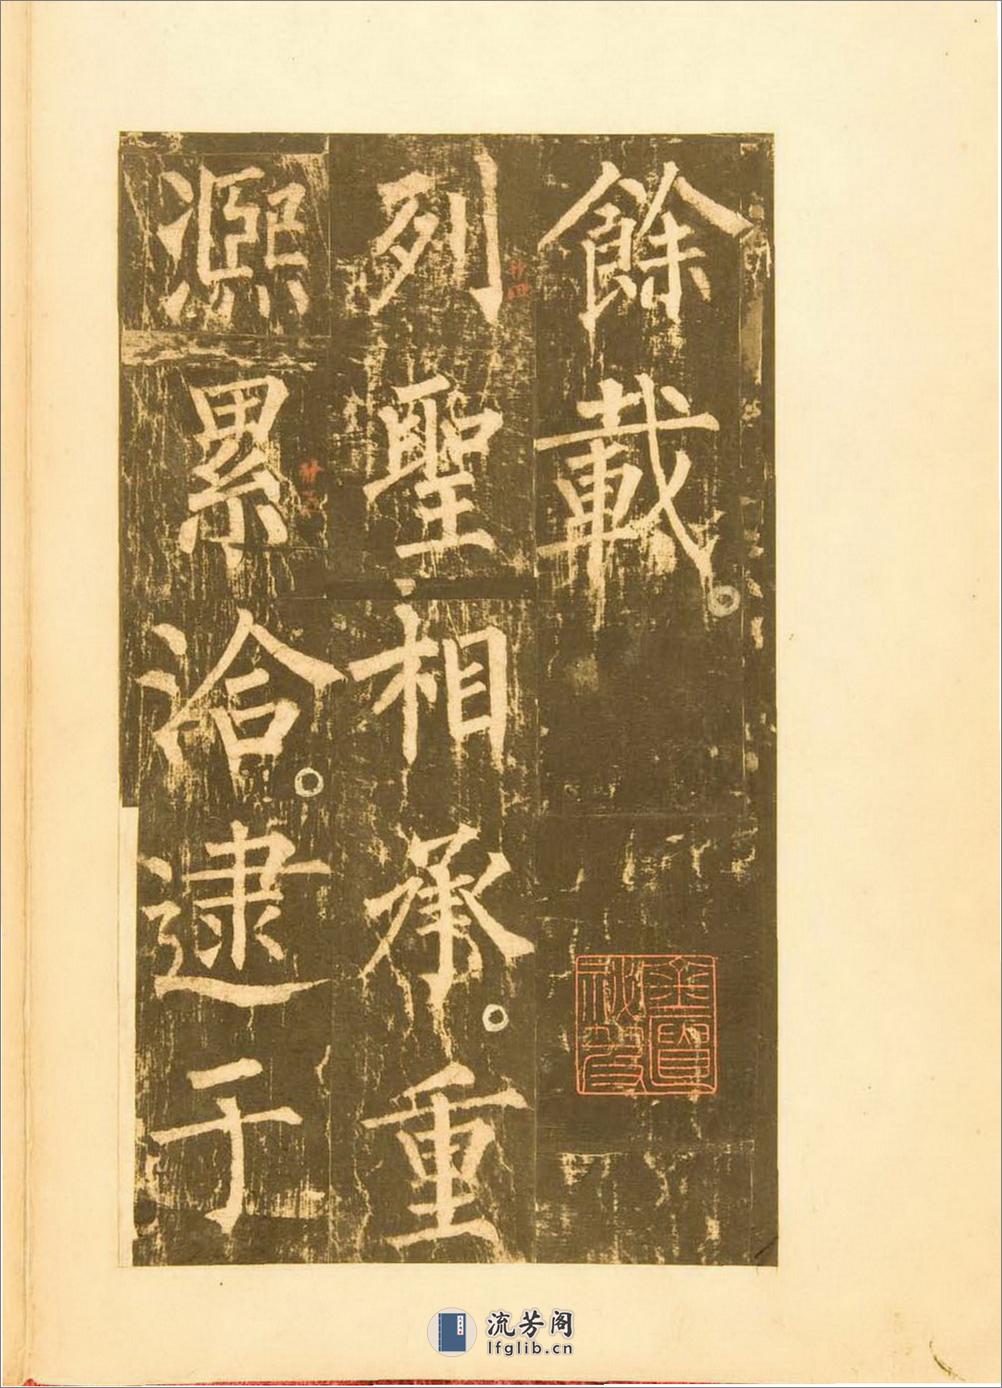 餘載。
列聖相承。重
凞累洽。逮于
流芳阁
lfglib.cn